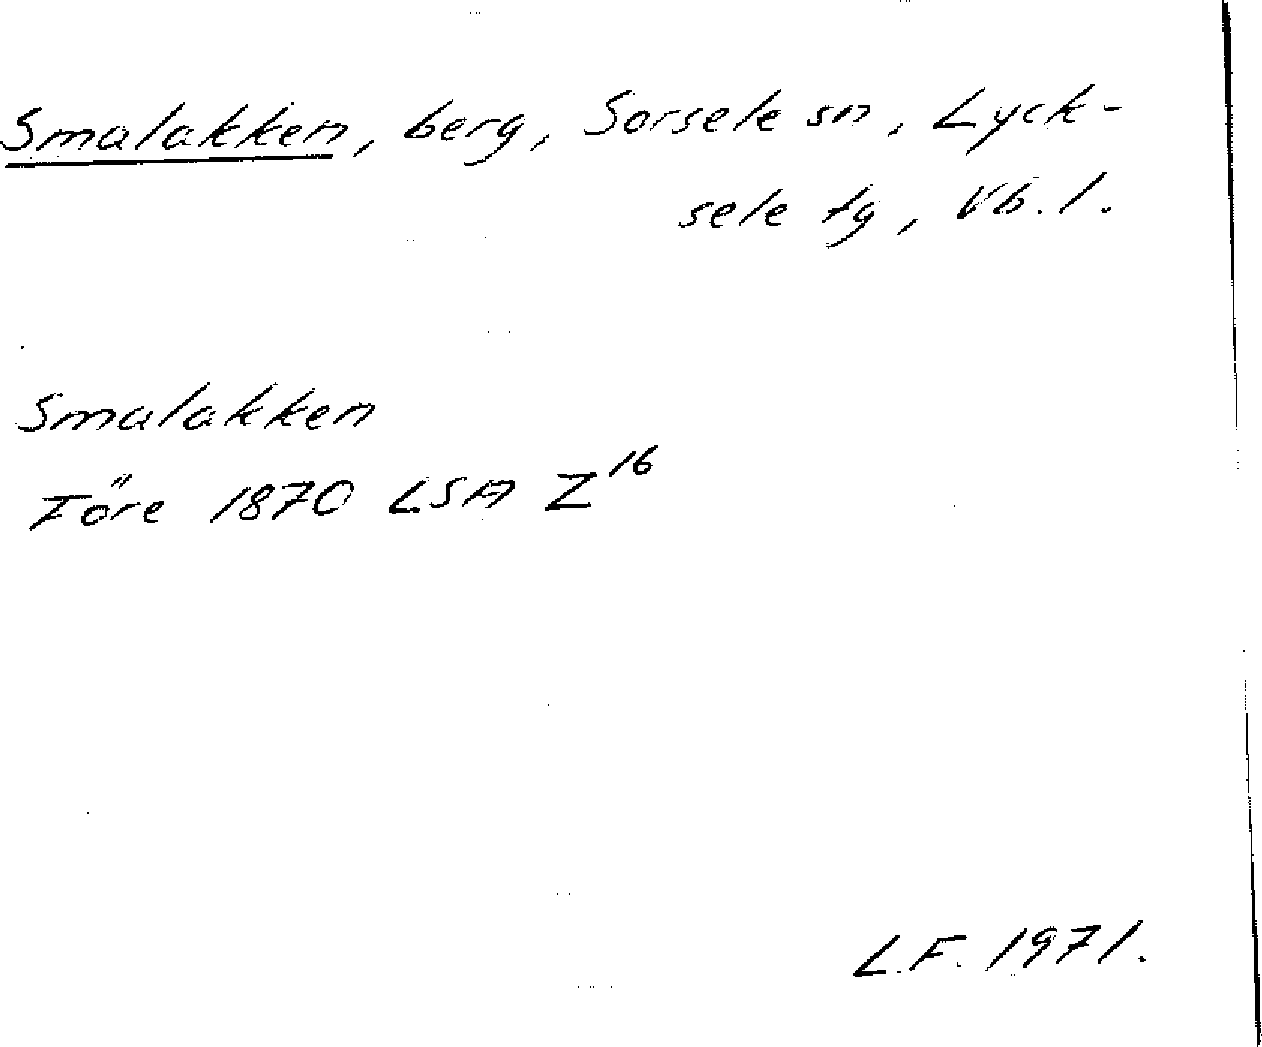 Smalakken, berg, Sorsele sn, Lyck-
sele tg, Vb. l.
Smalakken
Före 1870 LSA Z16
L.F. 1971.